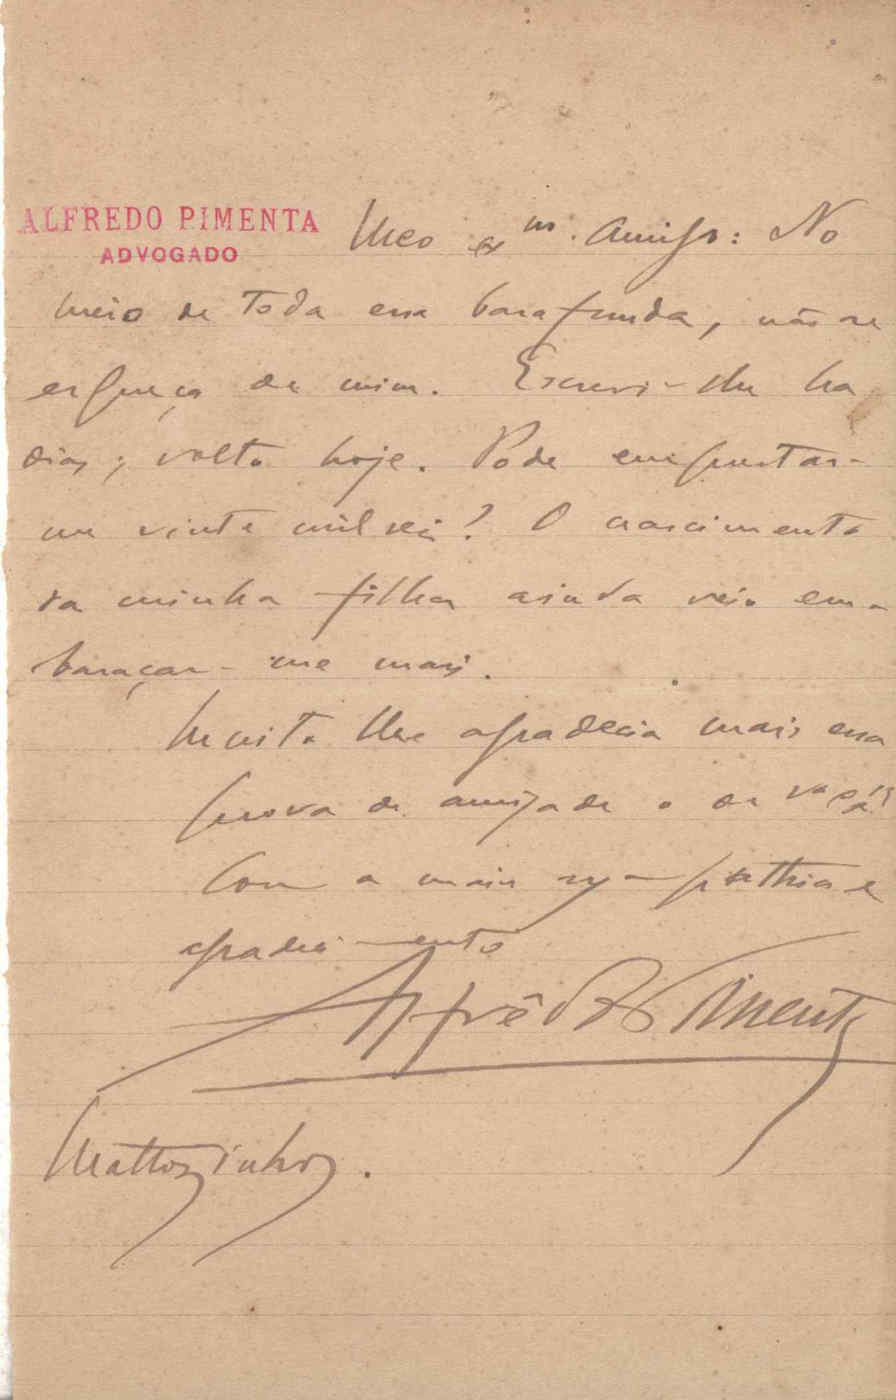 ALFREDO PIMENTA
ADVOGADO
Meo exmo. Amigo: No
meio de toda essa barafunda, não se
esqueça de mim. Escrevi-lhe ha
dias; volto hoje. Pode emprestar-
me vinte mil reis? O nascimento
da minha filha ainda veio em-
baraçar-me mais.
Muito lhe agradecia mais essa
prova de amizade o de
Com a maior sympathia e
agradecimento
Alfrêdo Pimenta
Mattozinhos.